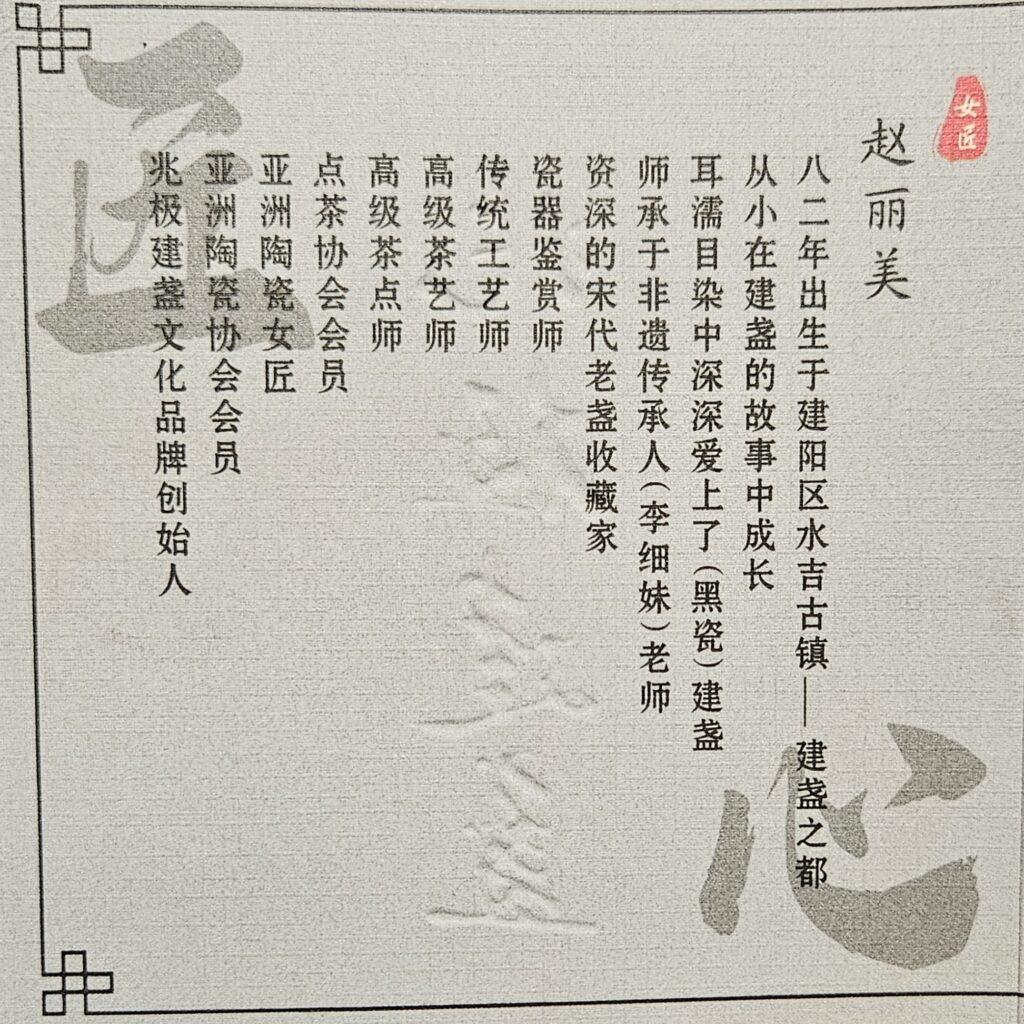 女匠
赵丽美
八二年出生于建阳区水吉古镇——建盏之都
从小在建盏的故事中成长
耳濡目染中深深爱上了(黑瓷)建盏
师承于非遗传承人(李细妹)老师
资深的宋代老盏收藏家
瓷器鉴赏师
传统工艺师
高级茶艺师
高级茶点师
点茶协会会员
亚洲陶瓷女匠
亚洲陶瓷协会会员
兆极建盏文化品牌创始人
匠心